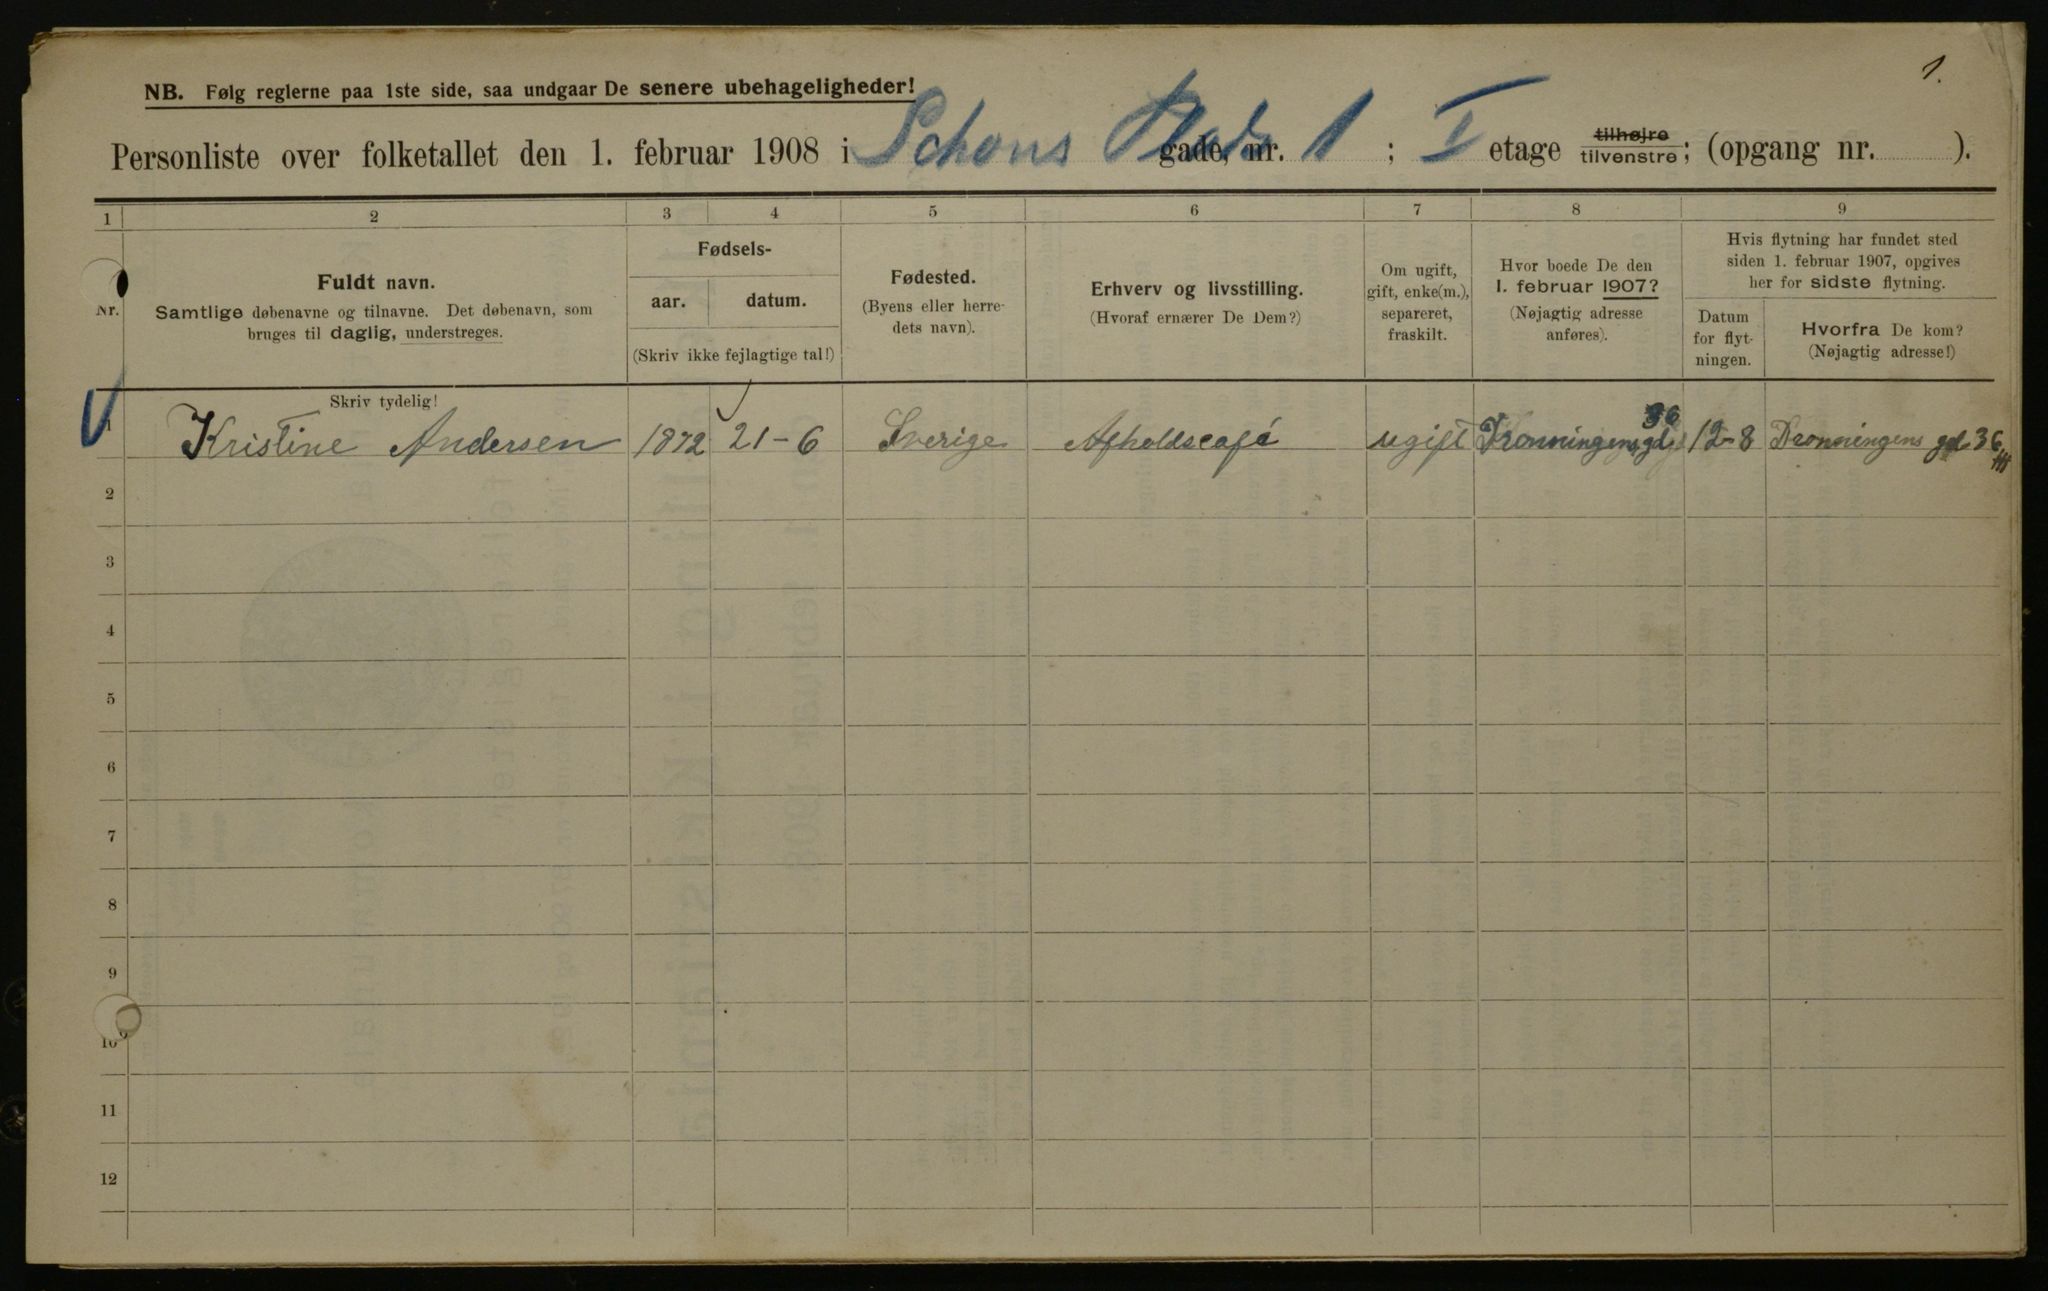 1.
NB. Følg reglerne paa 1ste side, saa undgaar De senere ubehageligheder!
Personliste over folketallet den 1. februar 1908 i Schous Plads gade, nr. 1 ; I etage tilhøjre tilvenstre; (opgang nr. ).
1 2 3 4 5 6 7 8 9
Nr.
Fuldt navn.
Samtlige døbenavne og tilnavne. Det døbenavn, som
bruges til daglig, understreges.
Skriv tydelig!
Fødsels-
aar. datum.
(Skriv ikke fejlagtige tal!)
Fødested.
(Byens eller herre-
dets navn).
Erhverv og livsstilling.
(Hvoraf ernærer De Dem?)
Om ugift,
gift, enke(m.),
separeret,
fraskilt.
Hvor boede De den
1. februar 1907?
(Nøjagtig adresse
anføres).
Hvis flytning har fundet sted
siden 1. februar 1907, opgives
her for sidste flytning.
Datum
for flyt-
ningen.
Hvorfra De kom?
(Nøjagtig adresse!)
1 Kristine Andersen 1872 21-6 Sverige Afholdscafé ugift Dronningens gd 36 12-8 Dronningens gd 36 III
2
3
4
5
6
7
8
9
10
11
12